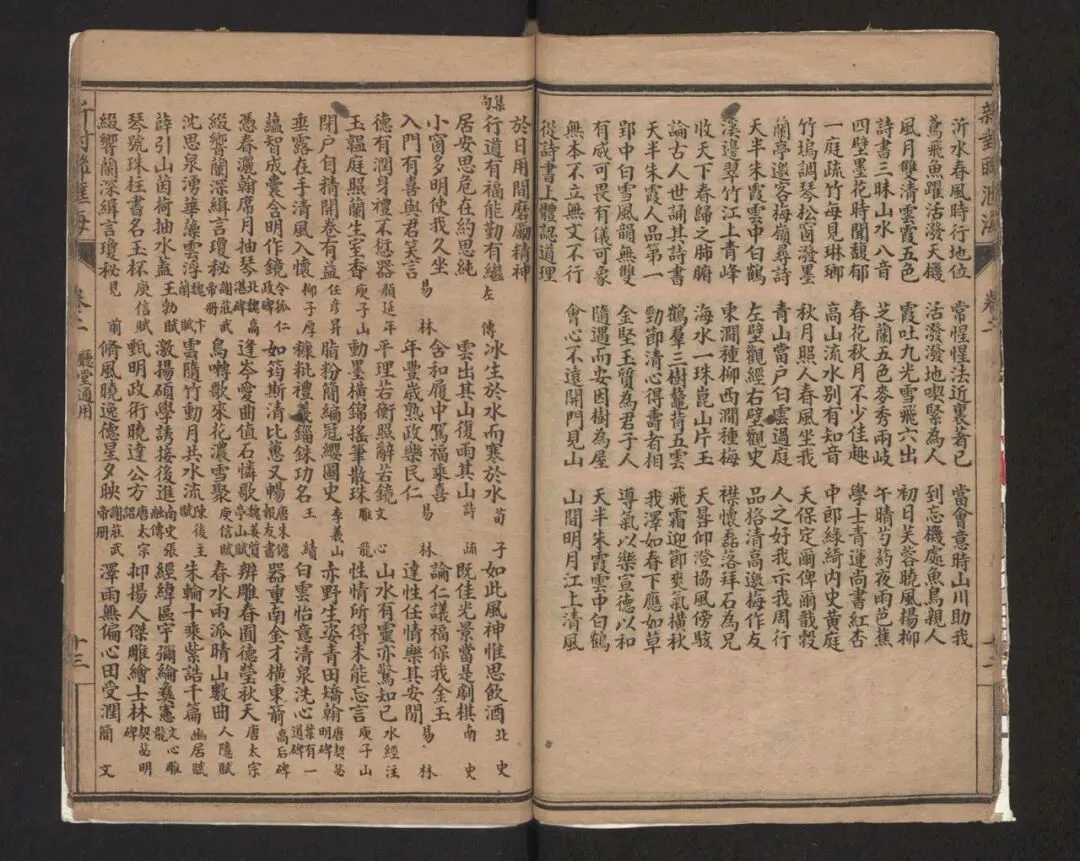 新對聯滙海 卷二 十二
沂水春風時行地位 常惺惺法近裏著己 當會意時山川助我
鳶飛魚躍活潑天機 活潑潑地喫緊為人 到忘機處魚鳥親人
風月雙清雲霞五色 霞吐九光雪飛六出 初日芙蓉曉風楊柳
詩書三昧山水八音 芝蘭五色麥秀兩岐 午晴芍葯夜雨芭蕉
四壁墨花時聞馥郁 春花秋月不少佳趣 學士青蓮尚書紅杏
一庭疏竹每見琳瑯 高山流水別有知音 中郎綠綺内史黃庭
竹塢調琴松窗潑墨 秋月照人春風坐我 天保定爾俾爾戩穀
蘭亭邀客梅嶺尋詩 青山當户白雲過庭 人之好我示我周行
天半朱霞雲中白鶴 左壁觀經右壁觀史 品格清高邀梅作友
溪邊翠竹江上青峰 東澗種柳西澗種梅 襟懷磊落拜石為兄
收天下春歸之肺腑 海水一珠崑山片玉 天晷仰澄協風傍駭
論古人世誦其詩書 鶴羣三樹鼇背五雲 飛霜迎節爽氣橫秋
天半朱霞人品第一 勁節清心得壽者相 我澤如春下應如草
郢中白雪風韻無雙 金堅玉質為君子人 導氣以樂宣德以和
有威可畏有儀可象 隨遇而安因樹為屋 天半朱霞雲中白鶴
無本不立無文不行 會心不遠開門見山 山間明月江上清風
從詩書上體認道理
於日用間磨勵精神
集句
行道有福能勤有繼 左傳 冰生於水而寒於水 荀子 如此風神惟思飲酒 北史
居安思危在約思純 雲出其山復雨其山 詩疏 既佳光景當是劇棋 南史
小窗多明使我久坐 易林 含和履中駕福乘喜 易林 論仁議福保我金玉 易林
入門有喜與君笑言 年豐歲熟政樂民仁 達性任情樂其安閒
德有潤身禮不愆器 顏延年 平理若衡照辭若鏡 文心雕龍 山水有靈亦驚知己 水經注
玉韞庭照蘭生室香 庾子山 動墨橫錦搖筆散珠 性情所得未能忘言 庾子山
閉户自精開卷有益 任彦昇 脂粉簡編冠纓圖史 李義山 赤野生姿青田矯翰 唐契苾明碑
垂露在手清風入懷 柳子厚 糠粃禮義錙銖功名 王績 白雲怡意清泉洗心 葉有一道碑
蘊智成囊含明作鏡 令狐仁政碑 如筠斯清比蕙又暢 唐朱報友書 器重南金才橫東箭 高石碑
憑春灑翰席月抽琴 北魏高湛碑 逢岑愛曲值石憐歌 魏姜質亭山賦 辨雕春囿德瑩秋天 唐太宗
綴響蘭深緝言瓊秘 謝莊武帝冊 鳥囀歌來花濃雪聚 庾信賦 春水雨派晴山數曲 人隱賦
沈思泉湧華藻雲浮 魏卞蘭賦 雲隨竹動月共水流 陳後主賦 朱輪十乘紫誥千篇 幽居賦
薛引山茵荷抽水蓋 王勃賦 激揚碩學誘接後進 南史張融傳 經緯區宇彌綸彝憲 文心雕龍
琴號珠柱書名玉杯 庾信賦 甄明政術曉達公方 唐太宗詔 抑揚人傑雕繪士林 契苾明碑
綴響蘭深緝言瓊秘 見前 脩風曉逸德星夕映 謝莊武帝冊 澤雨無偏心田受潤 簡文
新對聯滙海 卷二 廳堂通用 十三